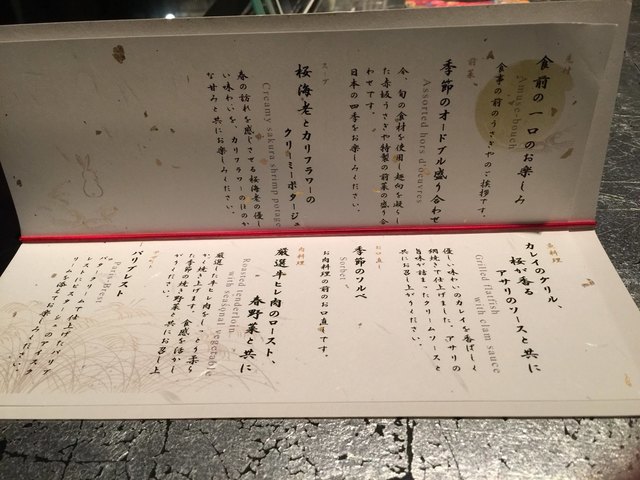 先付
食前の一口のお楽しみ
Amuse-bouch
食事の前のうさぎやのご挨拶です。
前菜
季節のオードブル盛り合わせ
Assorted hors d'oeuvres
今、旬の食材を使用し趣向を凝らし
た赤坂うさぎや特製の前菜の盛り合
わせです。
日本の四季をお楽しみください。
スープ
桜海老とカリフラワーの
クリーミーポタージュ
Creamy sakura shrimp potage
春の訪れを感じさせる桜海老の優し
い味わいを、カリフラワーのほのか
な甘みと共にお楽しみください。
魚料理
カレイのグリル、
桜が香る
アサリのソースと共に
Grilled flatfish
with clam sauce
優しい味わいのカレイを香ばしく
網焼きで仕上げました。アサリの
旨味が詰まったクリームソースと
共にお召し上がりください。
お口直し
季節のソルベ
Sorbet
お肉料理の前のお口直です。
肉料理
厳選牛ヒレ肉のロースト、
春野菜と共に
Roasted tenderloin
with seasonal vegetable
厳選した牛ヒレ肉をし
た季節の焼き野菜と共にお召し上
がりください。
パリブレスト
Paris-Brest